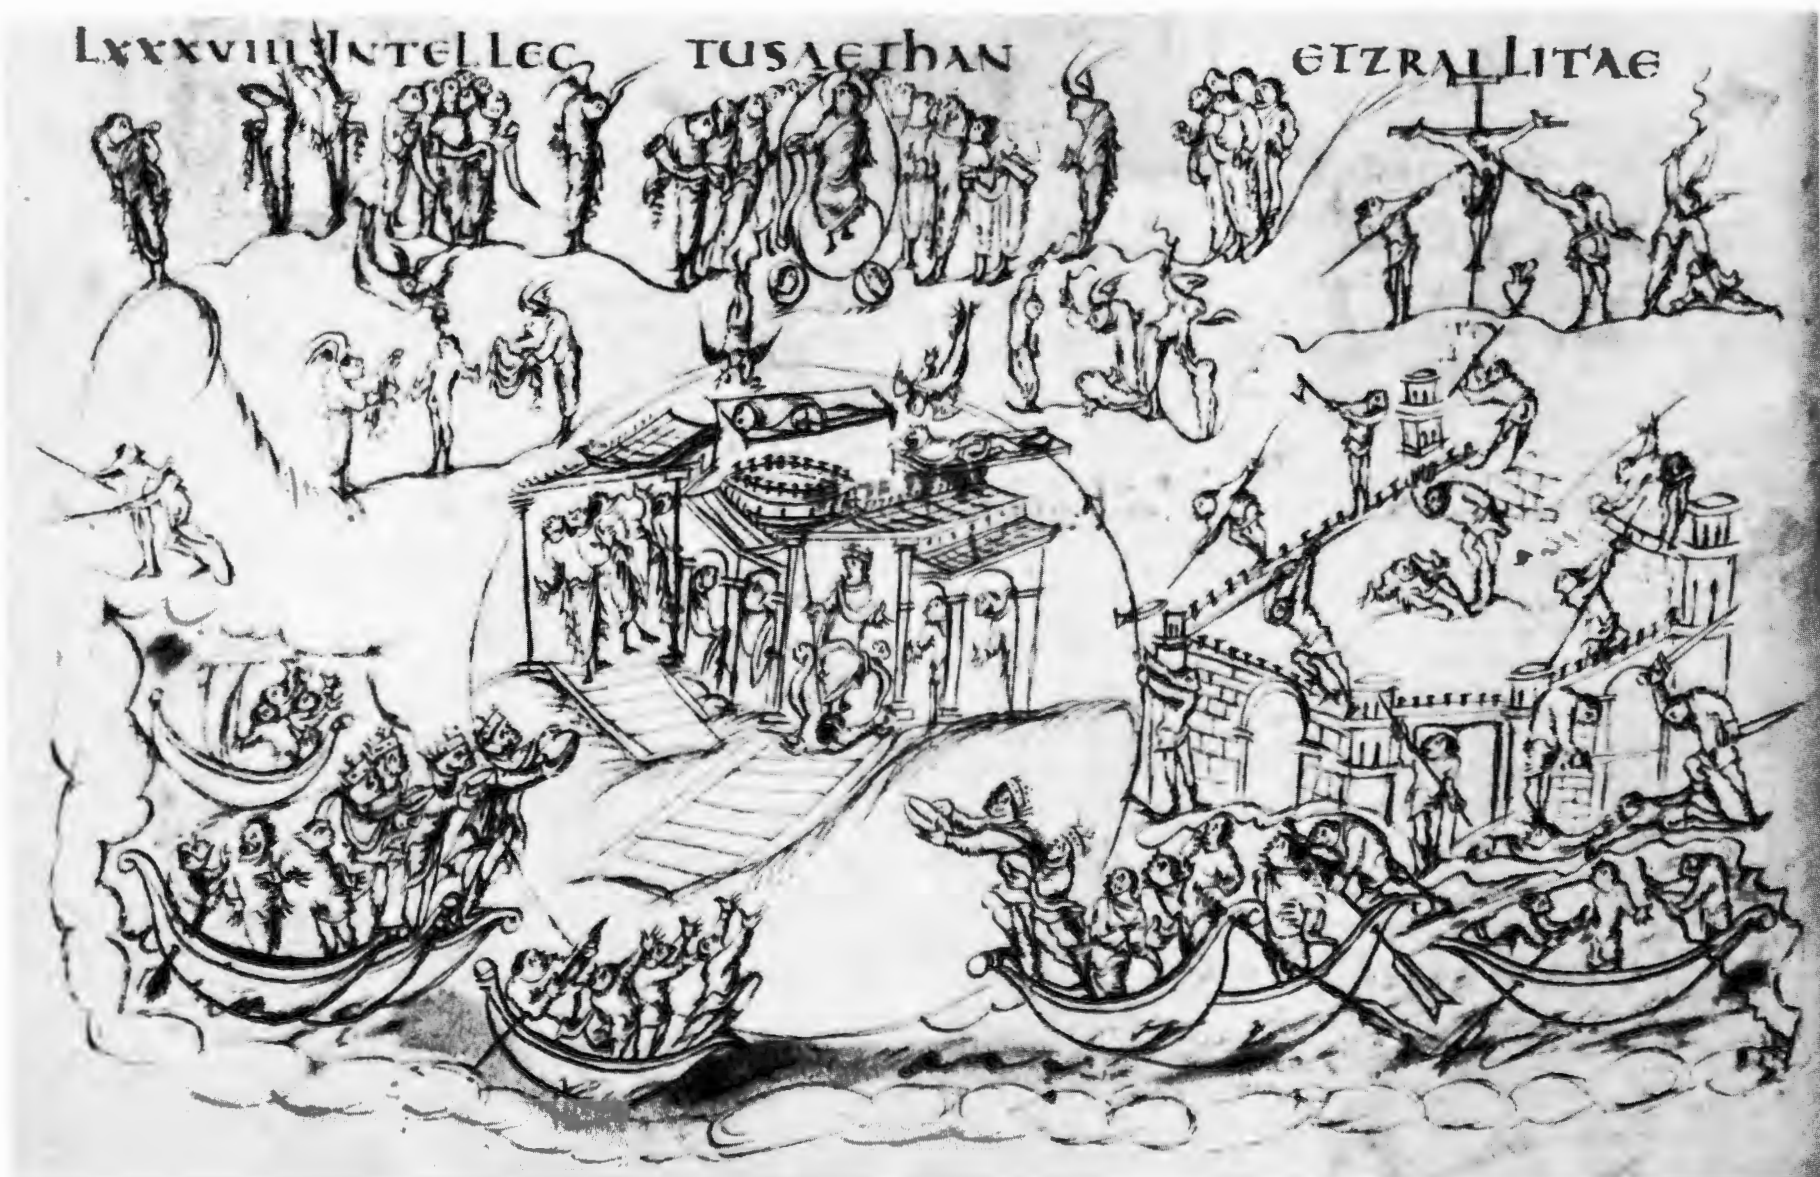 LXXXVIII INTELLEC TUSAEThAN EIZRALLITAE